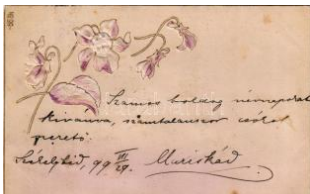 Számos boldog névnapot
kívánva, számtalanszor csókol
szerető
Székelyhid, 99 III/29. Mariskád